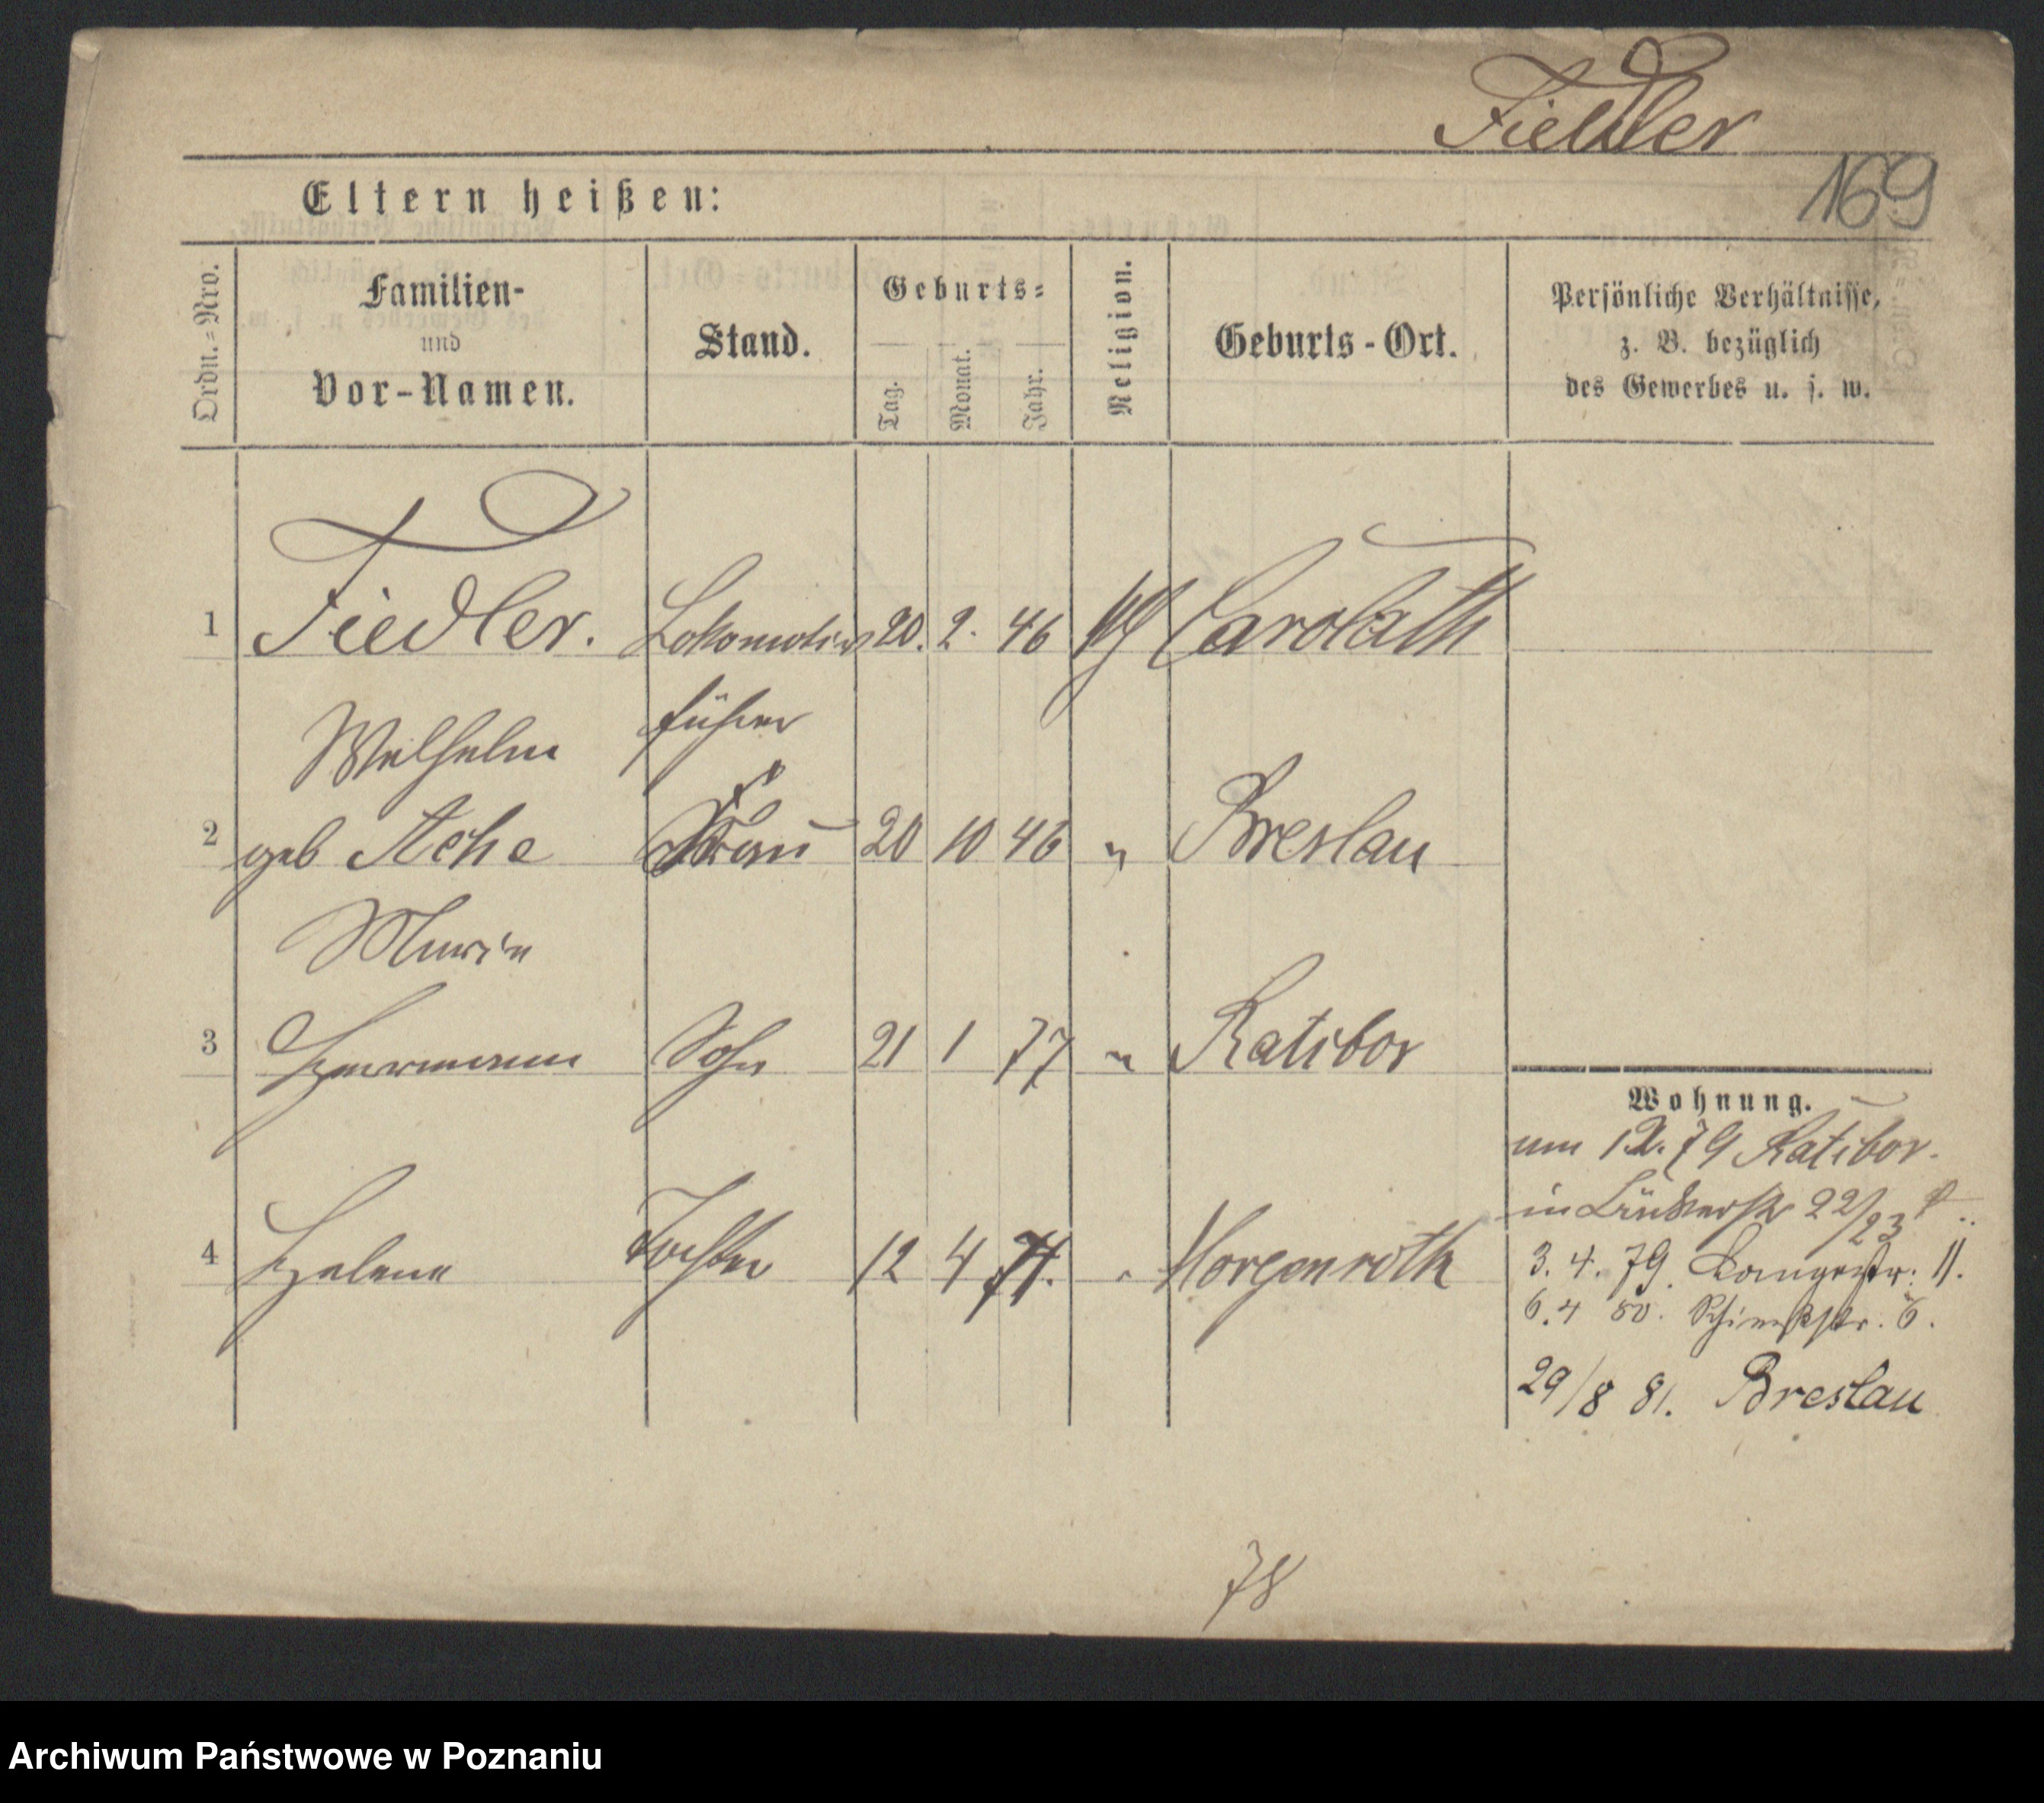 Fiedler
169
Eltern heißen:
Ordn.=Nro.
Familien-
und
Vor-Namen.
Stand.
Geburts=
Tag.
Monat.
Jahr.
Religion.
Geburts-Ort.
Persönliche Verhältnisse,
z. B. bezüglich
des Gewerbes u. s. w.
1 Fiedler. Lokomotiv 20. 2. 46 Carolath
Wilhelm führer
2 geb Ache Frau 20 10 46 " Breslau
Marie
3 Herrmann Sohn 21 1 77 " Ratibor
4 Helene Tochter 12 4 Morgenroth
Wohnung.
79 Ratibor.
in 22/23
3. 4. 79. Langestr. 11.
6. 4 80. 6.
29/8 81. Breslau
78
Archiwum Państwowe w Poznaniu